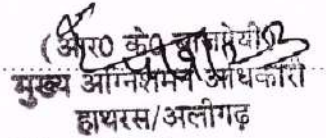 (आर0 के0 बाजपेयी)
मुख्य अग्निशमन अधिकारी
हाथरस/अलीगढ़